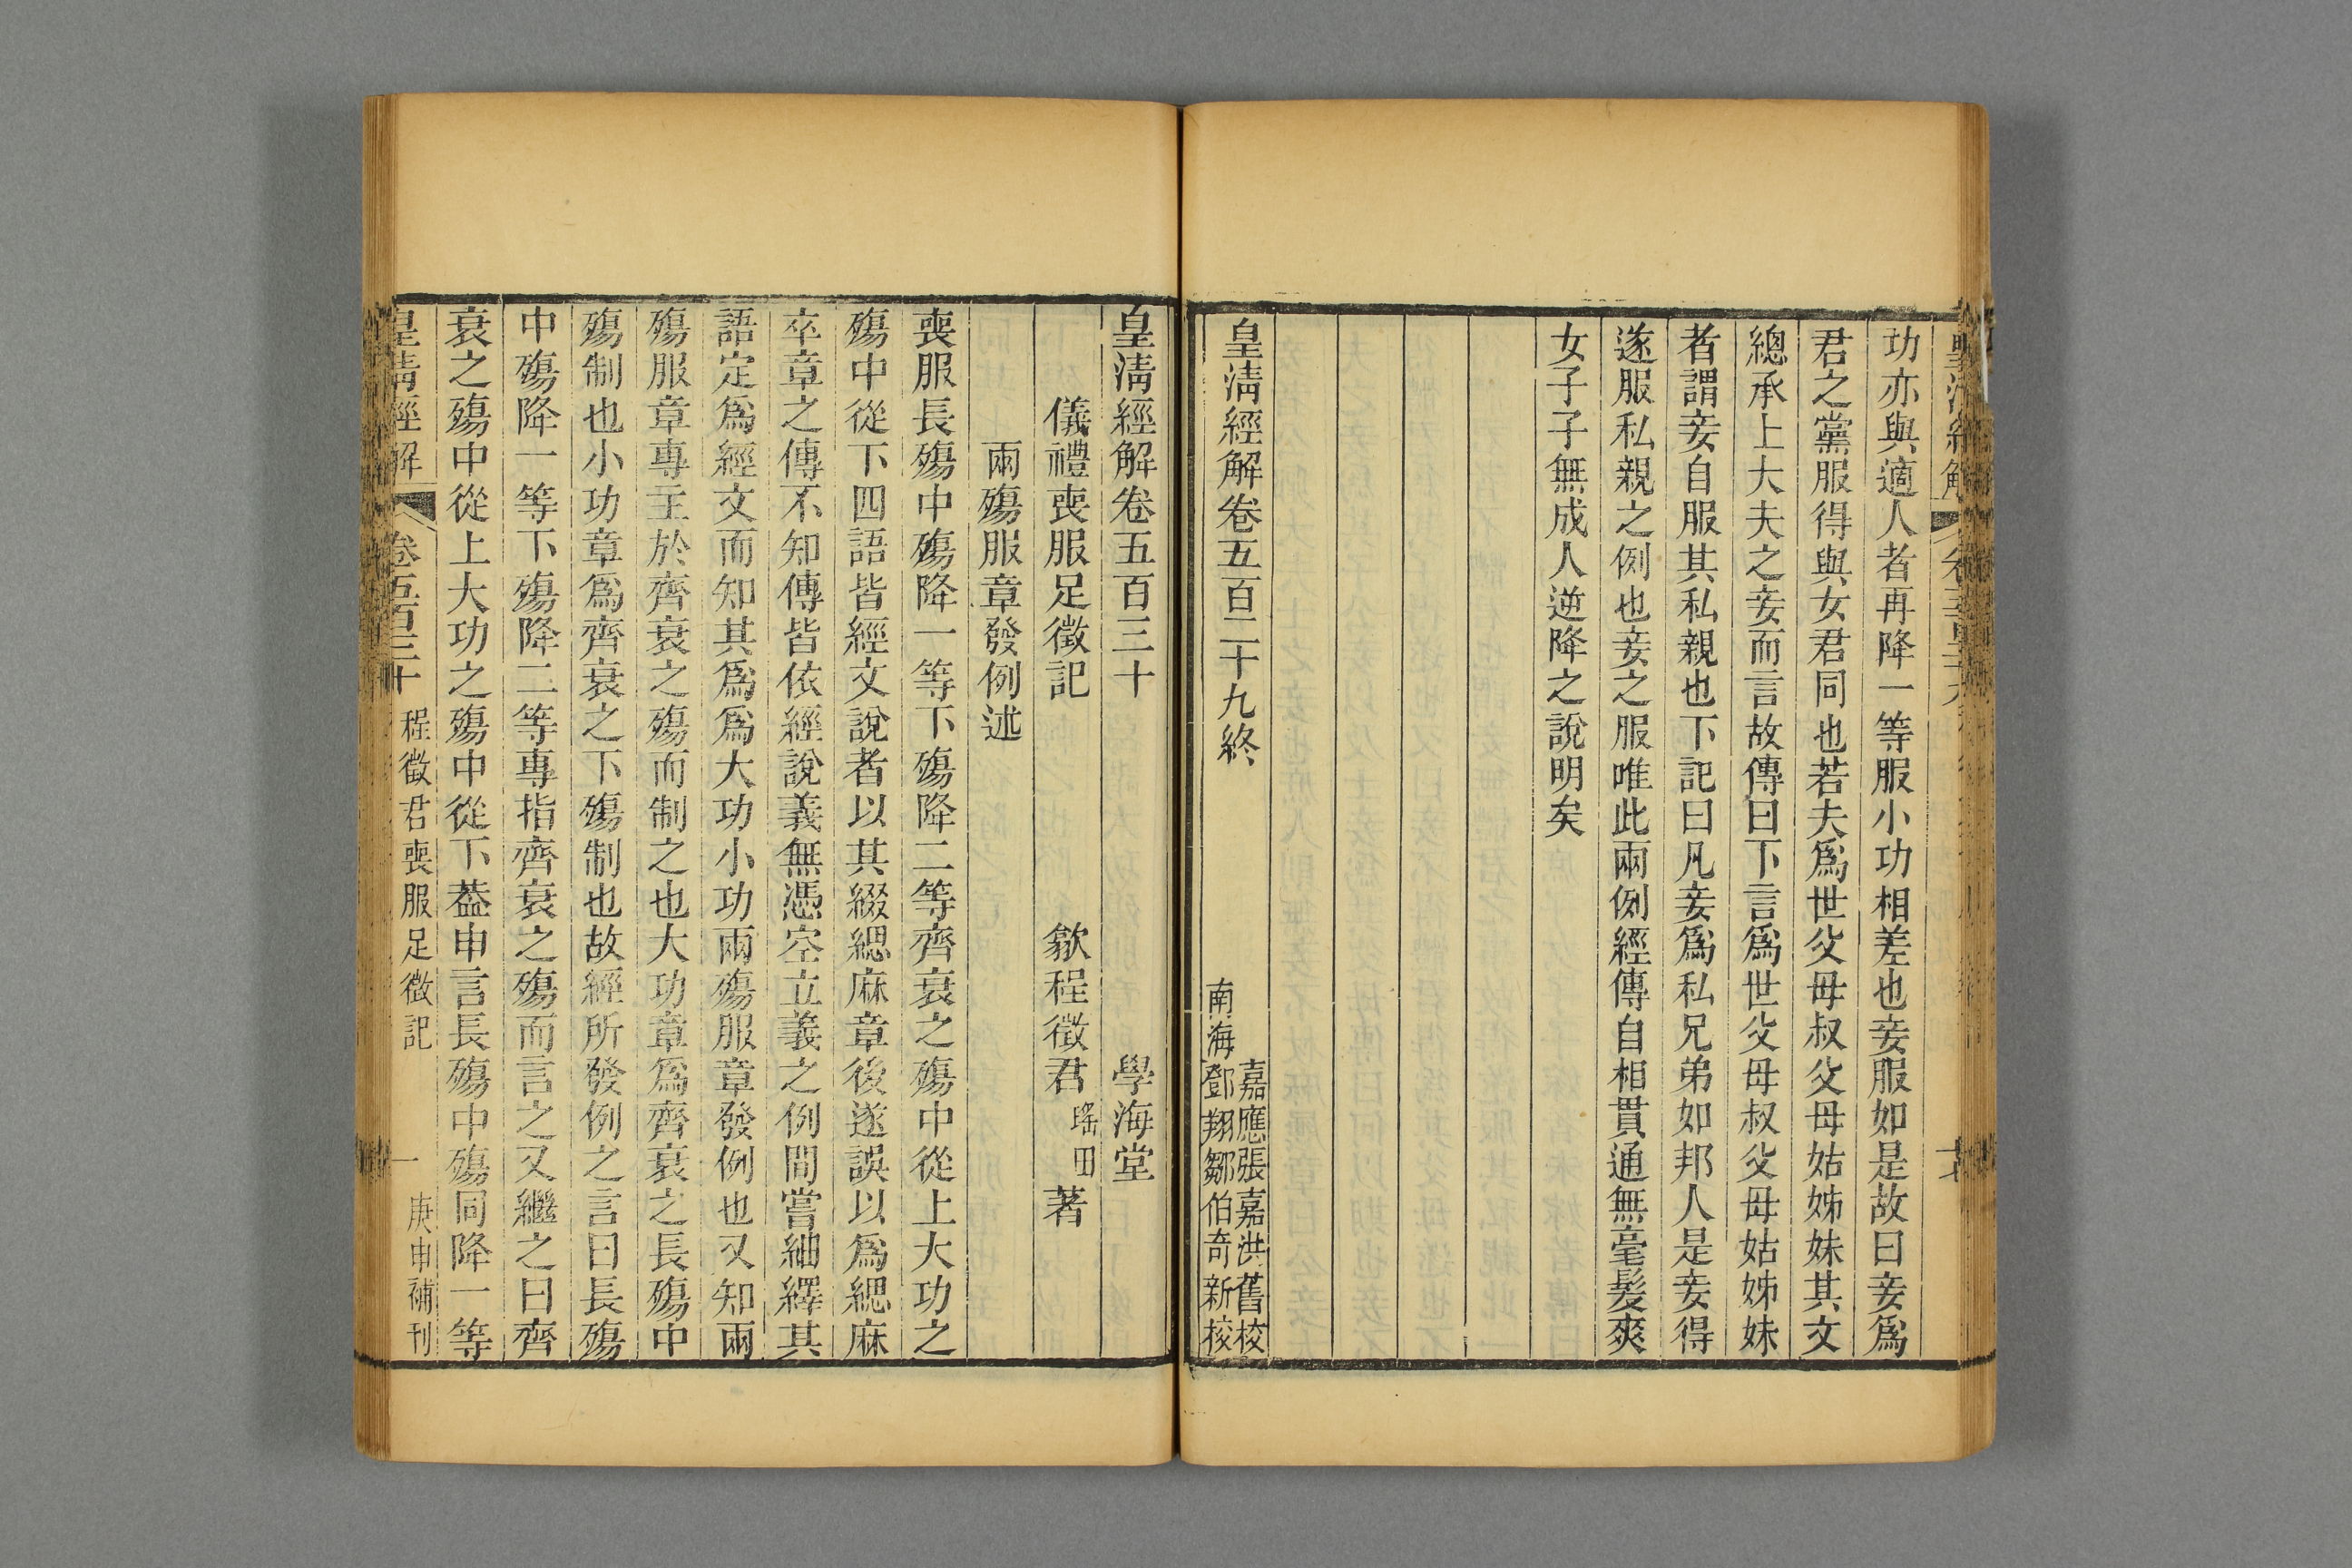 功亦與適人者再降一等服小功相差也妾服如是故曰妾爲
君之黨服得與女君同也若夫爲世父母叔父母姑姊妹其文
總承上大夫之妾而言故傳曰下言爲世父母叔父母姑姊妹
者謂妾自服其私親也下記曰凡妾爲私兄弟如邦人是妾得
遂服私親之例也妾之服唯此兩例經傳自相貫通無毫髮爽
女子子無成人逆降之說明矣
皇淸經解卷五百二十九終
嘉應張嘉洪舊校
南海鄧翔鄒伯奇新校
皇淸經解卷五百三十 學海堂
儀禮喪服足徵記 歙程徵君瑤田著
兩殤服章發例述
喪服長殤中殤降一等下殤降二等齊衰之殤中從上大功之
殤中從下四語皆經文說者以其綴緦麻章後遂誤以爲緦麻
卒章之傳不知傳皆依經說義無憑空立義之例間嘗紬繹其
語定爲經文而知其爲爲大功小功兩殤服章發例也又知兩
殤服章專主於齊衰之殤而制之也大功章爲齊衰之長殤中
殤制也小功章爲齊衰之下殤制也故經所發例之言曰長殤
中殤降一等下殤降二等專指齊衰之殤而言之又繼之曰齊
衰之殤中從上大功之殤中從下葢申言長殤中殤同降一等
皇淸經解 卷五百三十 程徵君喪服足徵記 一 庚申補刊